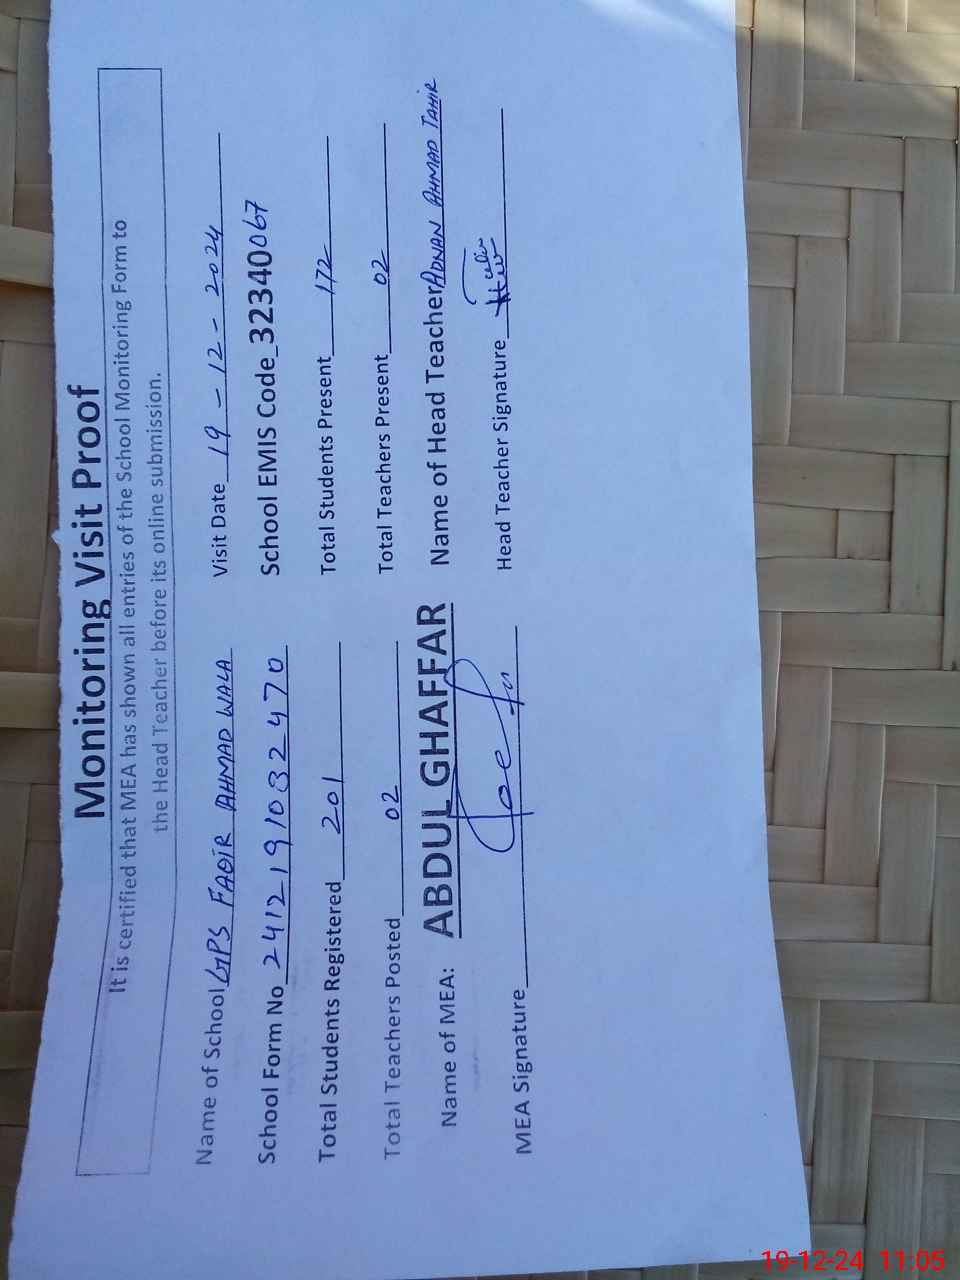 Monitoring Visit Proof
It is certified that MEA has shown all entries of the School Monitoring Form to
the Head Teacher before its online submission.
Name of School GPS FAQIR AHMAD WALA Visit Date 19-12-2024
School Form No 2412191032470 School EMIS Code_32340067
Total Students Registered 201 Total Students Present 172
Total Teachers Posted 02 Total Teachers Present 02
Name of MEA: ABDUL GHAFFAR Name of Head Teacher ADNAN AHMAD TAHIR
MEA Signature Head Teacher Signature
19-12-24 11:05